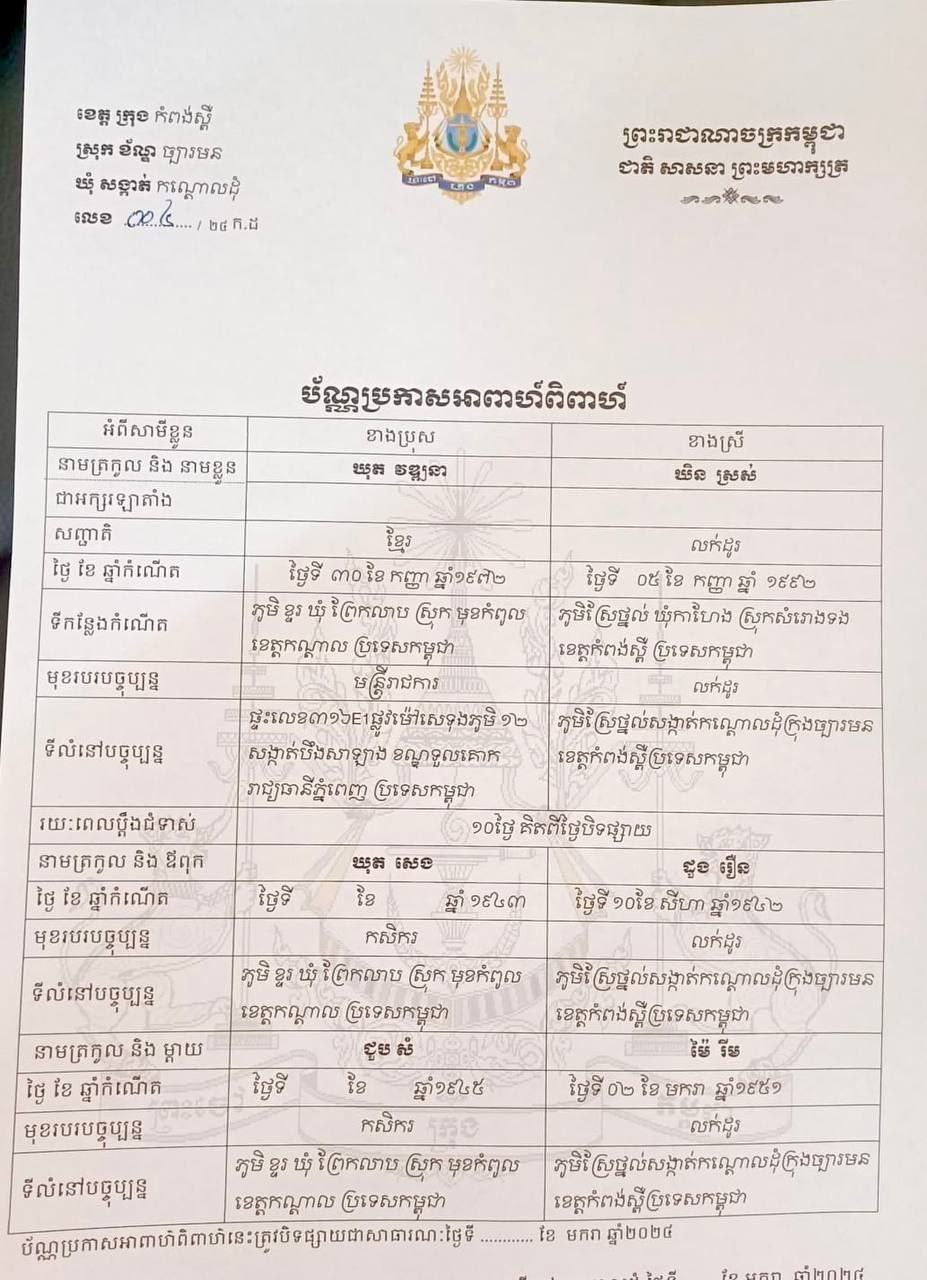 ខេត្ត ក្រុង កំពង់ស្ពឺ
ស្រុក ខ័ណ្ឌ ច្បារមន
ឃុំ សង្កាត់ កណ្ដោលដុំ
លេខ ៣៤ / ២៤ ក.ដ
ព្រះរាជាណាចក្រកម្ពុជា
ជាតិ សាសនា ព្រះមហាក្សត្រ
ប័ណ្ណប្រកាសអាពាហ៍ពិពាហ៍
អំពីសាមីខ្លួន ខាងប្រុស ខាងស្រី
នាមត្រកូល និង នាមខ្លួន ឃុត វឌ្ឍនា ឃិន ស្រស់
ជាអក្សរឡាតាំង
សញ្ជាតិ ខ្មែរ លក់ដូរ
ថ្ងៃ ខែ ឆ្នាំកំណើត ថ្ងៃទី ៣០ ខែ កញ្ញា ឆ្នាំ១៩៧២ ថ្ងៃទី ០៥ ខែ កញ្ញា ឆ្នាំ ១៩៩២
ទីកន្លែងកំណើត ភូមិ ខ្ទរ ឃុំ ព្រែកលាប ស្រុក មុខកំពូល ភូមិស្រែថ្នល់ ឃុំកាហែង ស្រុកសំរោងទង
ខេត្តកណ្ដាល ប្រទេសកម្ពុជា ខេត្តកំពង់ស្ពឺ ប្រទេសកម្ពុជា
មុខរបរបច្ចុប្បន្ន មន្ត្រីរាជការ លក់ដូរ
ផ្ទះលេខ៣១៦E1ផ្លូវម៉ៅសេទុងភូមិ ១២ ភូមិស្រែថ្នល់សង្កាត់កណ្ដោលដុំក្រុងច្បារមន
ទីលំនៅបច្ចុប្បន្ន សង្កាត់បឹងសាឡាង ខណ្ឌទួលគោក ខេត្តកំពង់ស្ពឺប្រទេសកម្ពុជា
រាជ្យធានីភ្នំពេញ ប្រទេសកម្ពុជា
រយៈពេលប្ដឹងជំទាស់ ១០ថ្ងៃ គិតពីថ្ងៃបិទផ្សាយ
នាមត្រកូល និង ឪពុក ឃុត សេង ដួង រឿន
ថ្ងៃ ខែ ឆ្នាំកំណើត ថ្ងៃទី ខែ ឆ្នាំ ១៩៤៣ ថ្ងៃទី ១០ខែ សីហា ឆ្នាំ១៩៤២
មុខរបរបច្ចុប្បន្ន កសិករ លក់ដូរ
ទីលំនៅបច្ចុប្បន្ន ភូមិ ខ្ទរ ឃុំ ព្រែកលាប ស្រុក មុខកំពូល ភូមិស្រែថ្នល់សង្កាត់កណ្ដោលដុំក្រុងច្បារមន
ខេត្តកណ្ដាល ប្រទេសកម្ពុជា ខេត្តកំពង់ស្ពឺប្រទេសកម្ពុជា
នាមត្រកូល និង ម្ដាយ ជួប សំ ម៉ៃ រីម
ថ្ងៃ ខែ ឆ្នាំកំណើត ថ្ងៃទី ខែ ឆ្នាំ១៩៤៥ ថ្ងៃទី ០២ ខែ មករា ឆ្នាំ១៩៥១
មុខរបរបច្ចុប្បន្ន កសិករ លក់ដូរ
ទីលំនៅបច្ចុប្បន្ន ភូមិ ខ្ទរ ឃុំ ព្រែកលាប ស្រុក មុខកំពូល ភូមិស្រែថ្នល់សង្កាត់កណ្ដោលដុំក្រុងច្បារមន
ខេត្តកណ្ដាល ប្រទេសកម្ពុជា ខេត្តកំពង់ស្ពឺប្រទេសកម្ពុជា
ប័ណ្ណប្រកាសអាពាហ៍ពិពាហ៍នេះត្រូវបិទផ្សាយជាសាធារណៈថ្ងៃទី ............ ខែ មករា ឆ្នាំ២០២៤
ខែ មករា ឆ្នាំ២០២៤